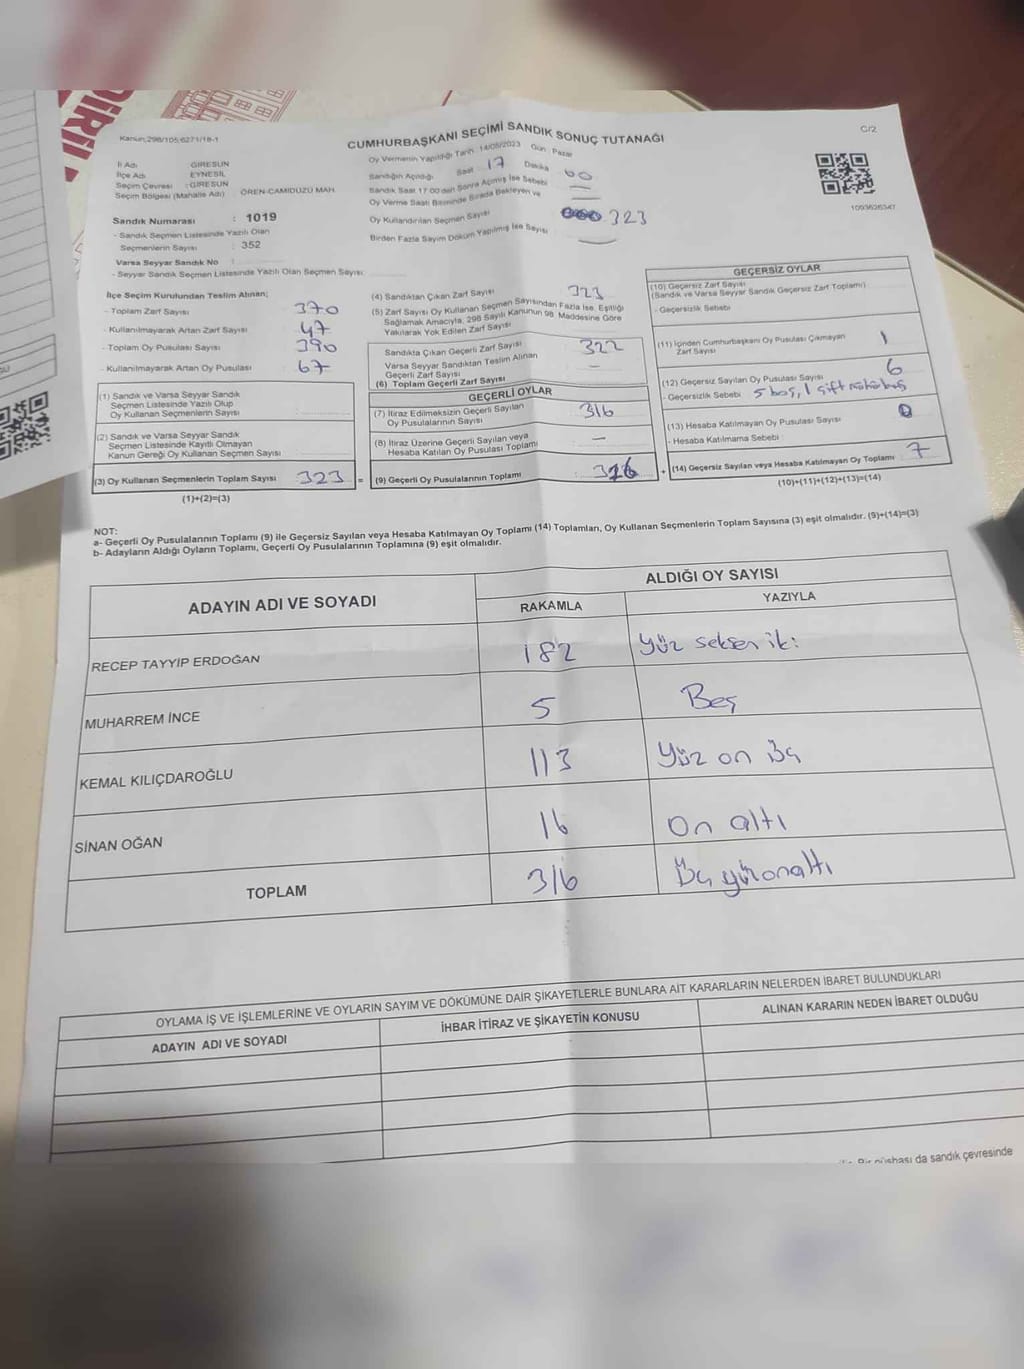 DİRİL
Kanun;298/105;6271/18-1
CUMHURBAŞKANI SEÇİMİ SANDIK SONUÇ TUTANAĞI
C/2
İl Adı : GİRESUN
İlçe Adı : EYNESİL
Seçim Çevresi : GİRESUN
Seçim Bölgesi (Mahalle Adı) : ÖREN-CAMİDÜZÜ MAH.
Sandık Numarası : 1019
- Sandık Seçmen Listesinde Yazılı Olan
Seçmenlerin Sayısı : 352
Varsa Seyyar Sandık No :
- Seyyar Sandık Seçmen Listesinde Yazılı Olan Seçmen Sayısı:
Oy Vermenin Yapıldığı Tarih 14/05/2023 Gün Pazar
Sandığın Açıldığı Saat 17 Dakika 00
Sandık Saat 17:00'den Sonra Açılmış İse Sebebi —
Oy Verme Saati Bitiminde Sırada Bekleyen ve —
Oy Kullandırılan Seçmen Sayısı 323
Birden Fazla Sayım Döküm Yapılmış İse Sayısı —
İlçe Seçim Kurulundan Teslim Alınan;
- Toplam Zarf Sayısı 370
- Kullanılmayarak Artan Zarf Sayısı 47
- Toplam Oy Pusulası Sayısı 390
- Kullanılmayarak Artan Oy Pusulası 67
(1) Sandık ve Varsa Seyyar Sandık
Seçmen Listesinde Yazılı Olup
Oy Kullanan Seçmenlerin Sayısı
(2) Sandık ve Varsa Seyyar Sandık
Seçmen Listesinde Kayıtlı Olmayan
Kanun Gereği Oy Kullanan Seçmen Sayısı
(3) Oy Kullanan Seçmenlerin Toplam Sayısı 323 =
(1)+(2)=(3)
(4) Sandıktan Çıkan Zarf Sayısı 323
(5) Zarf Sayısı Oy Kullanan Seçmen Sayısından Fazla İse, Eşitliği
Sağlamak Amacıyla, 298 Sayılı Kanunun 98. Maddesine Göre
Yakılarak Yok Edilen Zarf Sayısı
Sandıkta Çıkan Geçerli Zarf Sayısı 322
Varsa Seyyar Sandıktan Teslim Alınan
Geçerli Zarf Sayısı —
(6) Toplam Geçerli Zarf Sayısı
GEÇERLİ OYLAR
(7) İtiraz Edilmeksizin Geçerli Sayılan
Oy Pusulalarının Sayısı 316
(8) İtiraz Üzerine Geçerli Sayılan veya
Hesaba Katılan Oy Pusulası Toplamı —
(9) Geçerli Oy Pusulalarının Toplamı 316 +
1003626347
GEÇERSİZ OYLAR
(10) Geçersiz Zarf Sayısı
(Sandık ve Varsa Seyyar Sandık Geçersiz Zarf Toplamı)
- Geçersizlik Sebebi
(11) İçinden Cumhurbaşkanı Oy Pusulası Çıkmayan
Zarf Sayısı 1
(12) Geçersiz Sayılan Oy Pusulası Sayısı 6
- Geçersizlik Sebebi 5 boş, 1 çift
(13) Hesaba Katılmayan Oy Pusulası Sayısı 0
- Hesaba Katılmama Sebebi
(14) Geçersiz Sayılan veya Hesaba Katılmayan Oy Toplamı 7
(10)+(11)+(12)+(13)=(14)
NOT:
a- Geçerli Oy Pusulalarının Toplamı (9) ile Geçersiz Sayılan veya Hesaba Katılmayan Oy Toplamı (14) Toplamları, Oy Kullanan Seçmenlerin Toplam Sayısına (3) eşit olmalıdır. (9)+(14)=(3)
b- Adayların Aldığı Oyların Toplamı, Geçerli Oy Pusulalarının Toplamına (9) eşit olmalıdır.
ADAYIN ADI VE SOYADI
ALDIĞI OY SAYISI
RAKAMLA YAZIYLA
RECEP TAYYİP ERDOĞAN 182 Yüz seksen iki
MUHARREM İNCE 5 Beş
KEMAL KILIÇDAROĞLU 113 Yüz on üç
SİNAN OĞAN 16 On altı
TOPLAM 316 Üç yüz onaltı
OYLAMA İŞ VE İŞLEMLERİNE VE OYLARIN SAYIM VE DÖKÜMÜNE DAİR ŞİKAYETLERLE BUNLARA AİT KARARLARIN NELERDEN İBARET BULUNDUKLARI
ADAYIN ADI VE SOYADI İHBAR İTİRAZ VE ŞİKAYETİN KONUSU ALINAN KARARIN NEDEN İBARET OLDUĞU
Bir nüshası da sandık çevresinde